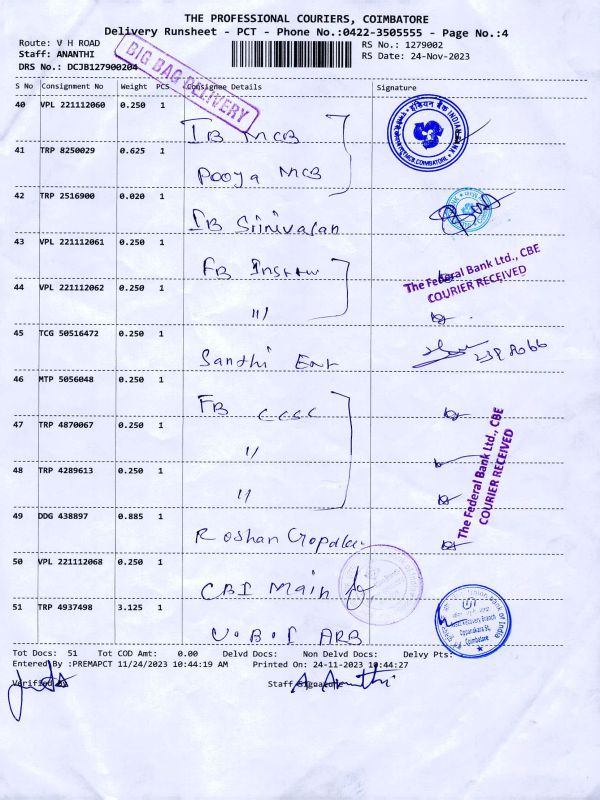 THE PROFESSIONAL COURIERS, COIMBATORE
Delivery Runsheet - PCT - Phone No.:0422-3505555 - Page No.:4
Route: V H ROAD
RS No.: 1279002
Staff: ANANTHI
RS Date: 24-Nov-2023
DRS No.: DCJB127900204
BIG BAG DELIVERY
S No Consignment No Weight PCS Consignee Details Signature
40 VPL 221112060 0.250 1
IB MCB
41 TRP 8250029 0.625 1
Pooja MCB
42 TRP 2516900 0.020 1
IB Srinivasan
43 VPL 221112061 0.250 1
FB
The Federal Bank Ltd., CBE
COURIER RECEIVED
44 VPL 221112062 0.250 1
11
45 TCG 50516472 0.250 1
Santhi Ent
46 MTP 5056048 0.250 1
FB
47 TRP 4870067 0.250 1
11
The Federal Bank Ltd., CBE
COURIER RECEIVED
48 TRP 4289613 0.250 1
11
49 DDG 438897 0.885 1
Roshan Gopalan
50 VPL 221112068 0.250 1
CBI Main
51 TRP 4937498 3.125 1
U.B.I ARB
Tot Docs: 51 Tot COD Amt: 0.00 Delvd Docs: Non Delvd Docs: Delvy Pts:
Entered By :PREMAPCT 11/24/2023 10:44:19 AM Printed On: 24-11-2023 10:44:27
Verified By Staff Signature
A. Ananthi